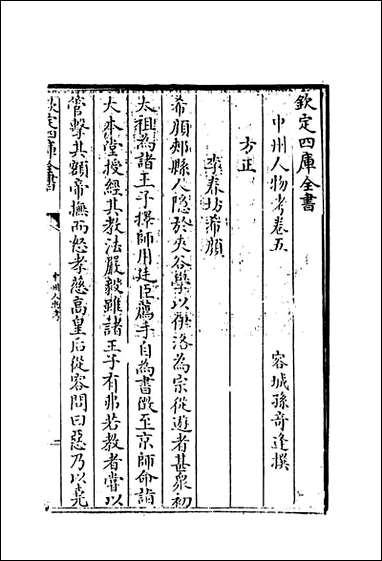 欽定四庫全書
中州人物考卷五
容城孫奇逢撰
方正
李春坊希顔
希顔郟縣人隱於夾谷學以伊洛為宗從遊者甚衆初
太祖為諸王子擇師用廷臣薦手自為書徵至京師命詣
大本堂授經其教法嚴毅雖諸王子有弗若教者嘗以
管擊其額帝撫而怒孝慈高皇后從容問曰惡乃以堯
欽定四庫全書
中州人物考
一